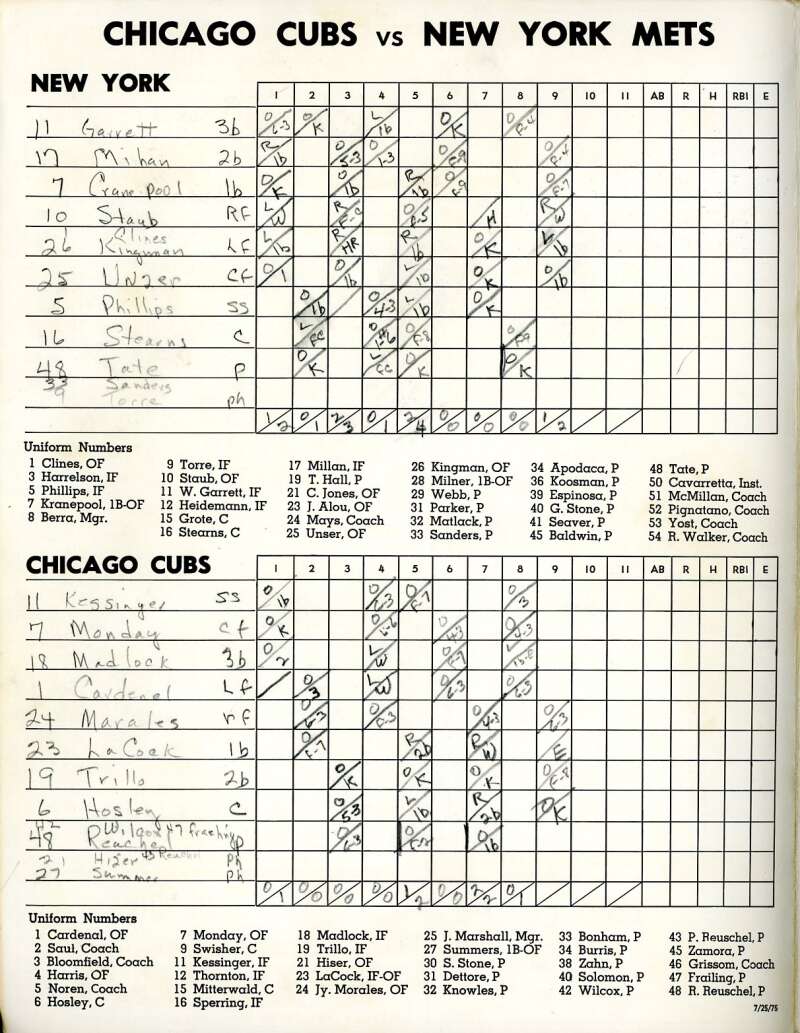 CHICAGO CUBS vs NEW YORK METS
NEW YORK 1 2 3 4 5 6 7 8 9 10 11 AB R H RBI E
11 Garrett 3b O/6-3 O/K L/1b O/K O/F-4
17 Milan 2b R/1b O/5-3 O/1-3 O/F-9 O/F-4
7 Crane-pool 1b O/K O/1b R/1b O/F-9 O/F-7
10 Staub RF L/W R/F-C H R/W
Clines
26 Kingman LF L/1b R/HR R/1b O/K L/1b
25 Unzer CF O/1 O/1b L/1b O/K O/1b
5 Phillips SS O/1b O/4-3 L/1b O/K
16 Stearns C L/FC O/F-8 O/F9
48 Tate P O/K L/FC O/K O/K
33 Sanders
9 Torre ph
1/2 0/1 2/3 0/1 2/4 0/0 0/0 0/0 1/2
Uniform Numbers
1 Clines, OF 9 Torre, IF 17 Millan, IF 26 Kingman, OF 34 Apodaca, P 48 Tate, P
3 Harrelson, IF 10 Staub, OF 19 T. Hall, P 28 Milner, 1B-OF 36 Koosman, P 50 Cavarretta, Inst.
5 Phillips, IF 11 W. Garrett, IF 21 C. Jones, OF 29 Webb, P 39 Espinosa, P 51 McMillan, Coach
7 Kranepool, 1B-OF 12 Heidemann, IF 23 J. Alou, OF 31 Parker, P 40 G. Stone, P 52 Pignatano, Coach
8 Berra, Mgr. 15 Grote, C 24 Mays, Coach 32 Matlack, P 41 Seaver, P 53 Yost, Coach
16 Stearns, C 25 Unser, OF 33 Sanders, P 45 Baldwin, P 54 R. Walker, Coach
CHICAGO CUBS 1 2 3 4 5 6 7 8 9 10 11 AB R H RBI E
11 Kessinger SS O/1b O/6-3 O/F-7 O/3
7 Monday cf O/K O/4-3
18 Madlock 3b O/2 L/W O/F-7
1 Cardenel Lf O/3 L/W O/6-3 O/6-3
24 Marales rf O/6-3 O/F-3 O/4-3 O/6-3
23 LaCock 1b O/F-7 R/2b R/W E
19 Trillo 2b O/K O/K O/K O/F-8
6 Hosley C O/5-3 L/1b R/2b O/K
42 Wilcox 47 Frailing
48 Reuchel P O/6-3 O/1b
21 Hizer Ph
27 Summer Ph
0/1 0/0 0/0 0/0 1/2 0/0 2/2 0/1
Uniform Numbers
1 Cardenal, OF 7 Monday, OF 18 Madlock, IF 25 J. Marshall, Mgr. 33 Bonham, P 43 P. Reuschel, P
2 Saul, Coach 9 Swisher, C 19 Trillo, IF 27 Summers, 1B-OF 34 Burris, P 45 Zamora, P
3 Bloomfield, Coach 11 Kessinger, IF 21 Hiser, OF 30 S. Stone, P 38 Zahn, P 46 Grissom, Coach
4 Harris, OF 12 Thornton, IF 23 LaCock, IF-OF 31 Dettore, P 40 Solomon, P 47 Frailing, P
5 Noren, Coach 15 Mitterwald, C 24 Jy. Morales, OF 32 Knowles, P 42 Wilcox, P 48 R. Reuschel, P
6 Hosley, C 16 Sperring, IF
7/25/75